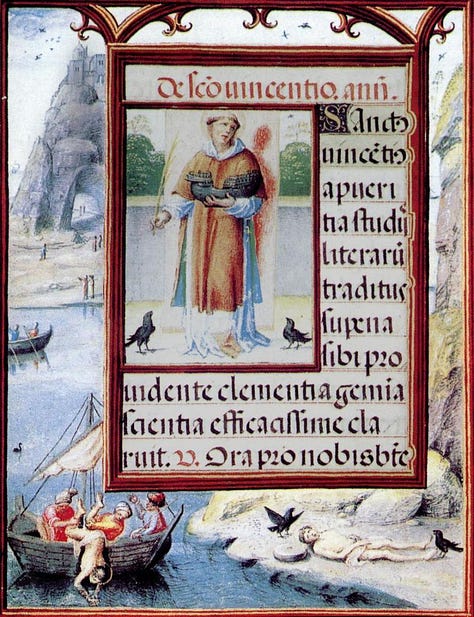 De scō uincentio. anñ.
Sanctꝰ
uincētꝰ
a pueri
tia studijs
literarū
traditus
superna
sibi pro
uidente clementia gemīa
scientia efficacissime cla
ruit. V. Ora pro nobis bte